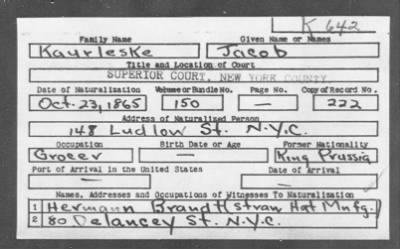 K 642
Family Name Given Name or Names
Kaurleske Jacob
Title and Location of Court
SUPERIOR COURT, NEW YORK COUNTY.
Date of Naturalization Volume or Bundle No. Page No. Copy of Record No.
Oct. 23, 1865 150 — 222
Address of Naturalized Person
148 Ludlow St. N.Y.C.
Occupation Birth Date or Age Former Nationality
Grocer — King Prussia
Port of Arrival in the United States Date of Arrival
— —
Names, Addresses and Occupations of Witnesses To Naturalization
1 Hermann Brandt (Straw Hat Mnfg.)
2 80 Delancey St. N.Y.C.